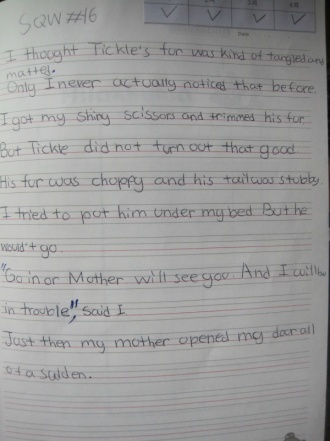 SQW #16
Date
I thought Tickle's fur was kind of tangled and
matted.
Only I never actually noticed that before.
I got my shiny scissors and trimmed his fur.
But Tickle did not turn out that good.
His fur was choppy and his tail was stubby.
I tried to put him under my bed. But he
would't go.
"Go in or Mother will see you. And I will be
in trouble", said I.
Just then my mother opened my door all
of a sudden.